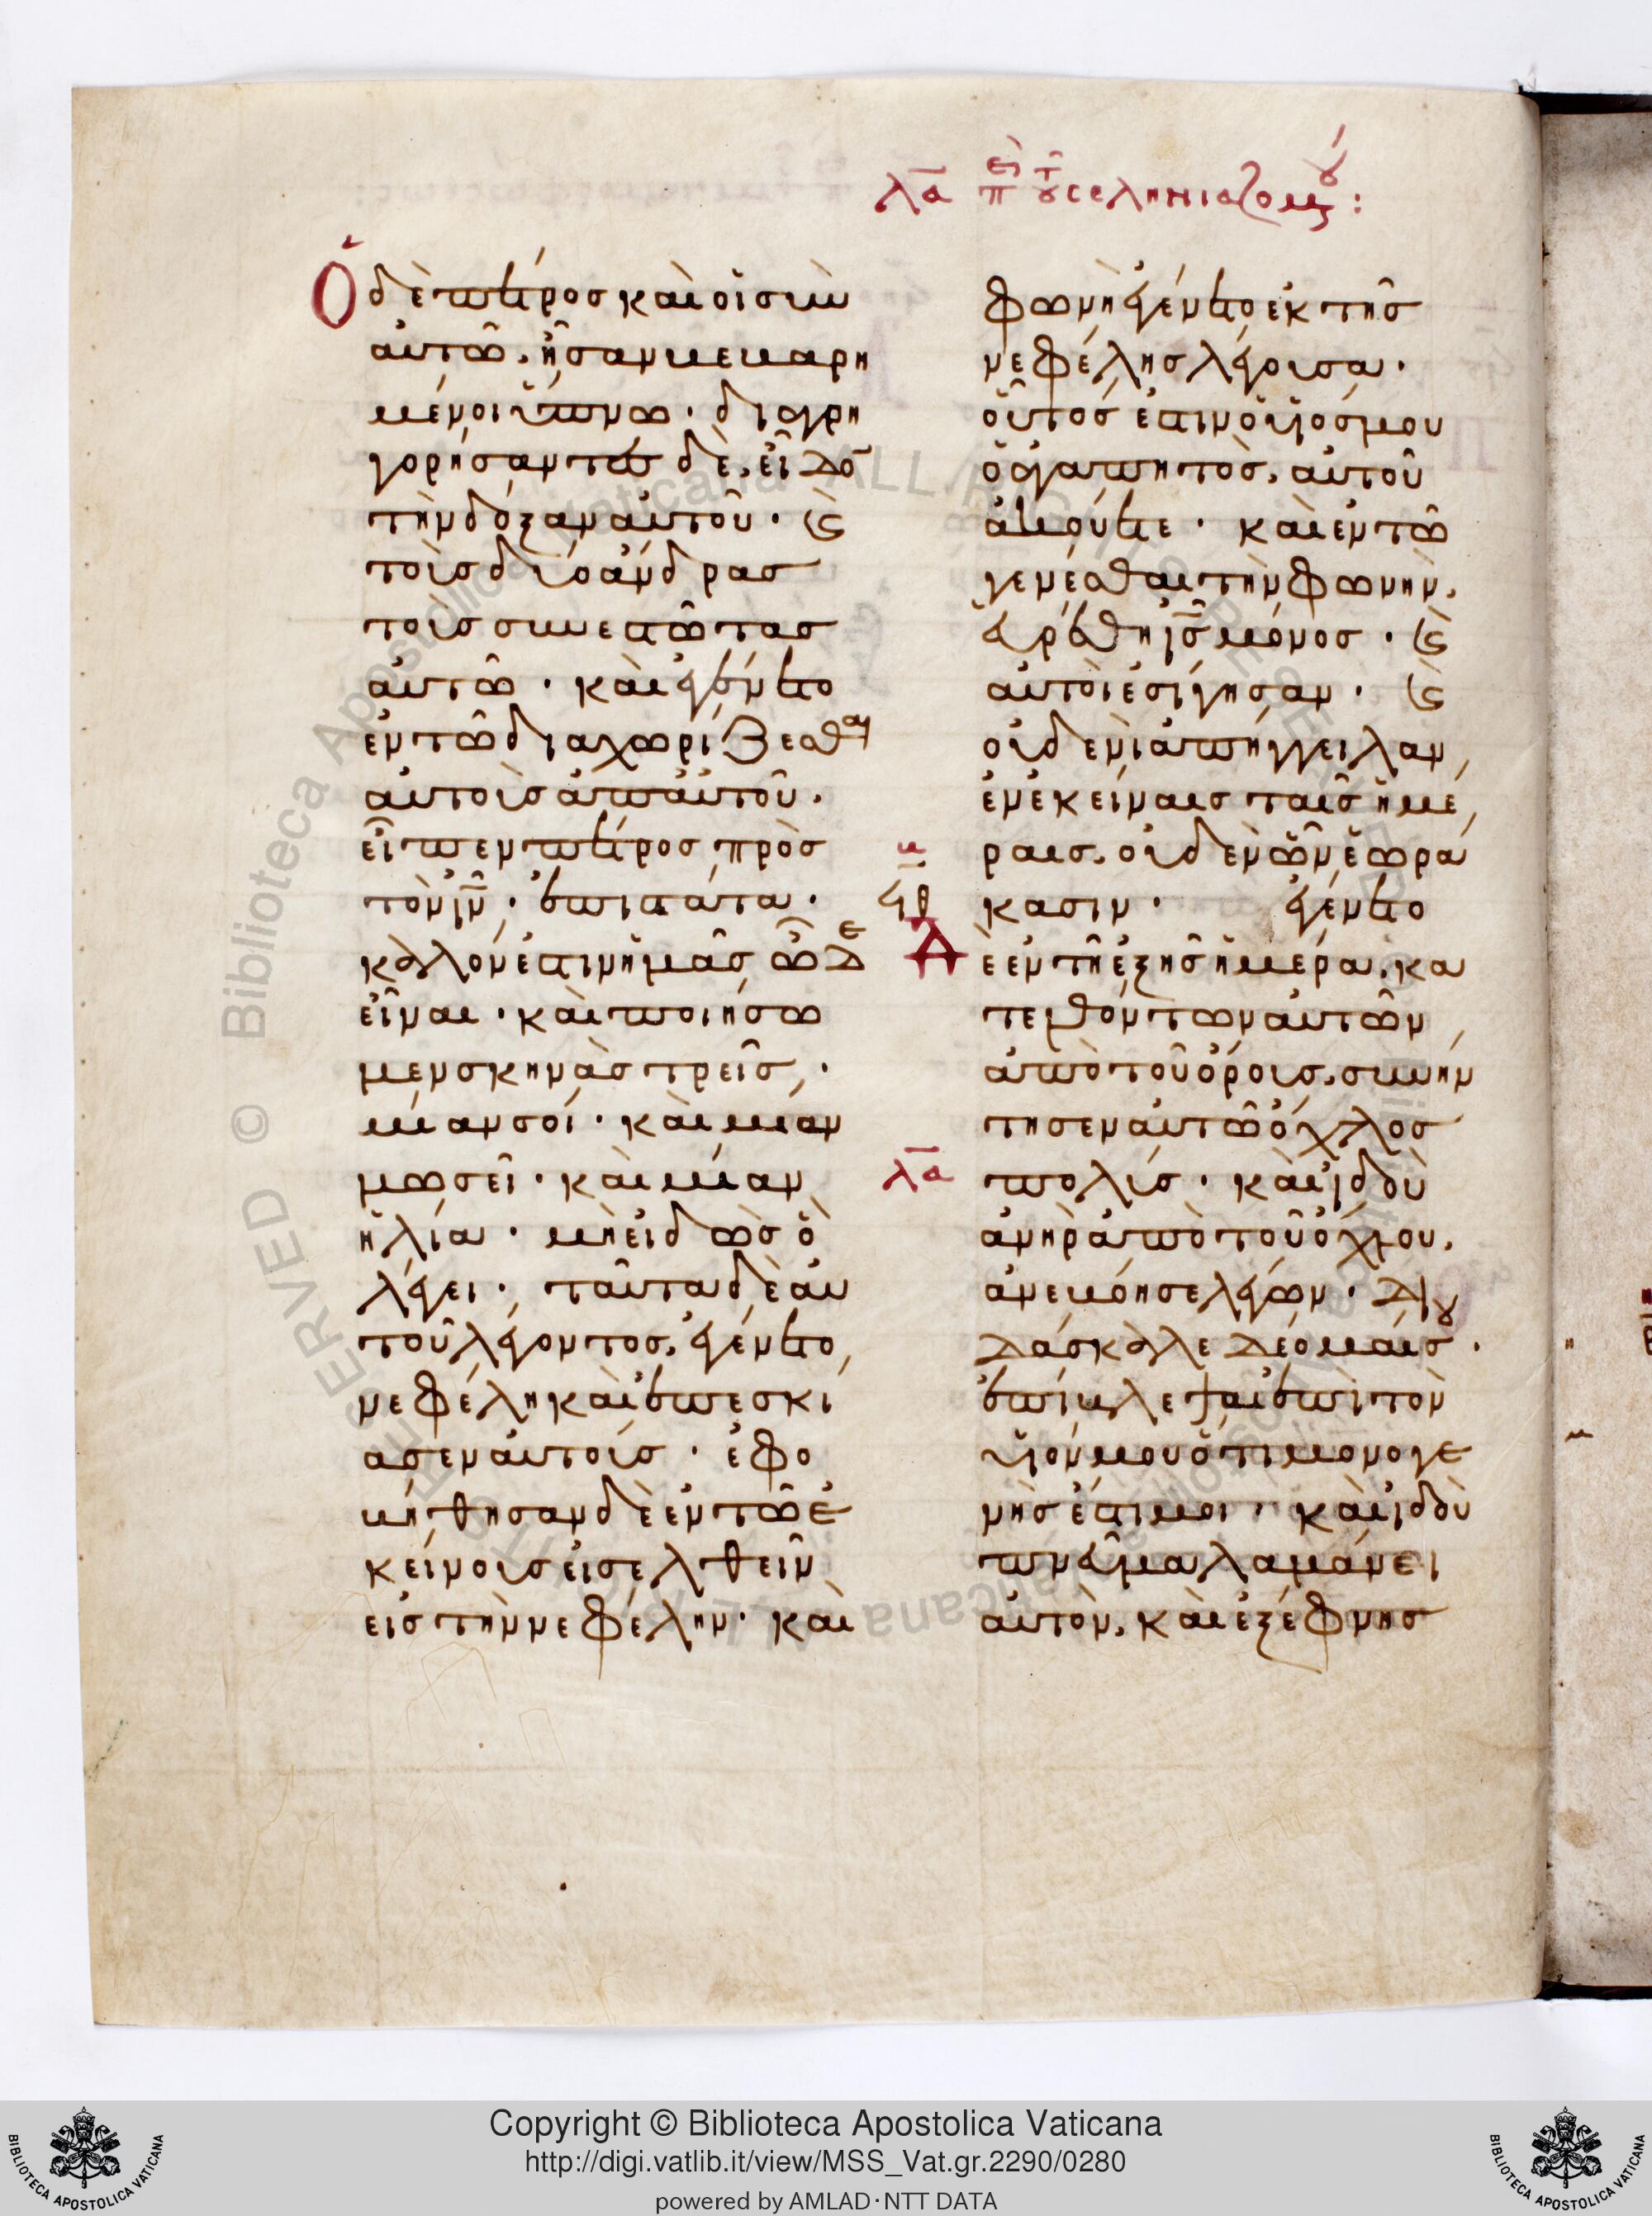 λα π τ σεληνιαζομ :
Ὁ δὲ πέτρος καὶ οἱ σὺν
αὐτῶ, ἦσαν βεβαρη
μένοι ὕπνω· διαγρη
γορήσαντες δὲ, εἶδο
τὴν δόξαν αὐτοῦ· ϛ
τοὺς δύο ἄνδρας
τοὺς συνεστῶτας
αὐτῶ· καὶ ἐγένετο
ἐν τῶ διαχωρίζεσθαι
αὐτοὺς ἀπ' αὐτοῦ·
εἶπεν πέτρος πρὸς
τὸν ιν· ἐπιστάτα·
καλόν ἐστιν ἡμᾶς ὧδε
εἶναι· καὶ ποιήσω
μεν σκηνὰς τρεῖς,·
μίαν σοί· καὶ μίαν
μωσεῖ· καὶ μίαν
ἡλία· μὴ εἰδὼς ὃ
λέγει· ταῦτα δὲ αὐ
τοῦ λέγοντος, ἐγένετο
νεφέλη καὶ ἐπεσκί
ασεν αὐτούς· ἐφο
βήθησαν δὲ ἐν τῶ ἐ
κείνους εἰσελθεῖν
εἰς τὴν νεφέλην· καὶ
φωνὴ ἐγένετο ἐκ τῆς
νεφέλης λέγουσα·
οὗτός ἐστιν ὁ υἱός μου
ὁ ἀγαπητὸς, αὐτοῦ
ἀκούετε· καὶ ἐν τῶ
γενέσθαι τὴν φωνὴν,
εὑρέθη ις μόνος· ϛ
αὐτοὶ ἐσίγησαν· ϛ
οὐδενὶ ἀπήγγειλαν
ἐν ἐκείναις ταῖς ἡμέ
ραις, οὐδὲν ὧν ἑωρά
κασιν· ἐγένετο
Δὲ ἐν τῆ ἑξῆς ἡμέρα, κα
τελθόντων αὐτῶν
ἀπὸ τοῦ ὄρους, συνήν
τησεν αὐτῶ ὄχλος
λα
πολύς· καὶ ἰδοὺ
ἀνὴρ ἀπὸ τοῦ ὄχλου,
ἀνεβόησε λέγων· Δι
δάσκαλε δέομαί σ·
ἐπίβλεψαι ἐπὶ τὸν
υἱόν μου ὅτι μονογε
νής ἐστι μοι· καὶ ἰδοὺ
πνεῦμα λαμβάνει
αὐτὸν, καὶ ἐξέφνης
Copyright © Biblioteca Apostolica Vaticana
http://digi.vatlib.it/view/MSS_Vat.gr.2290/0280
powered by AMLAD·NTT DATA
BIBLIOTECA APOSTOLICA VATICANA
BIBLIOTECA APOSTOLICA VATICANA